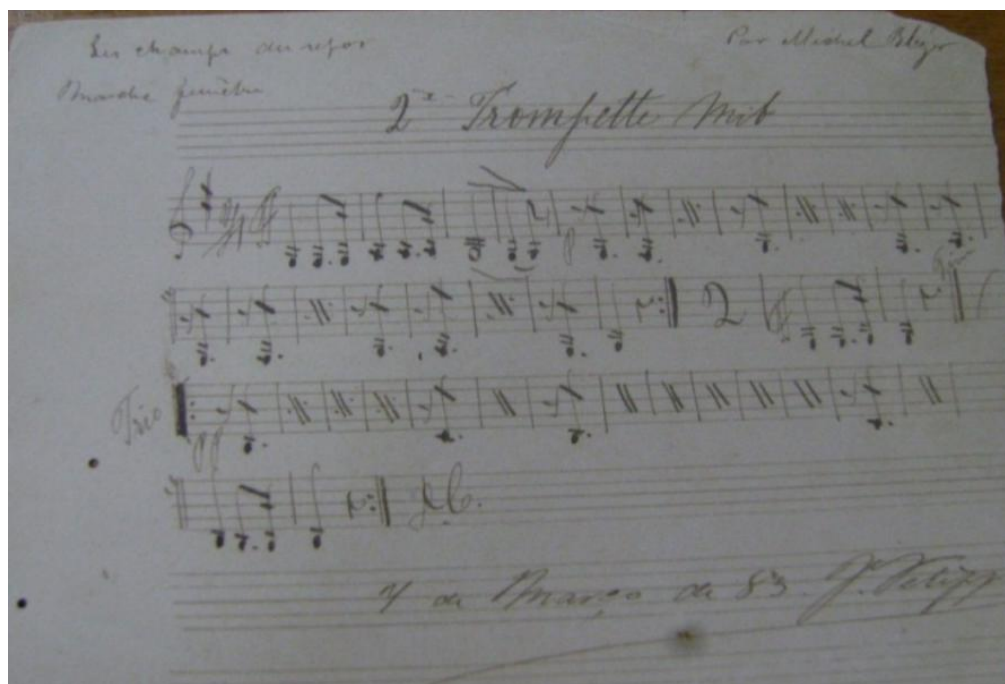 Les champs du repos
Par Michel Bléger
Marche funèbre
2e Trompette Mib
ff
2
Trio
pp
D.C.
4 de Março de 83. J. Felipp